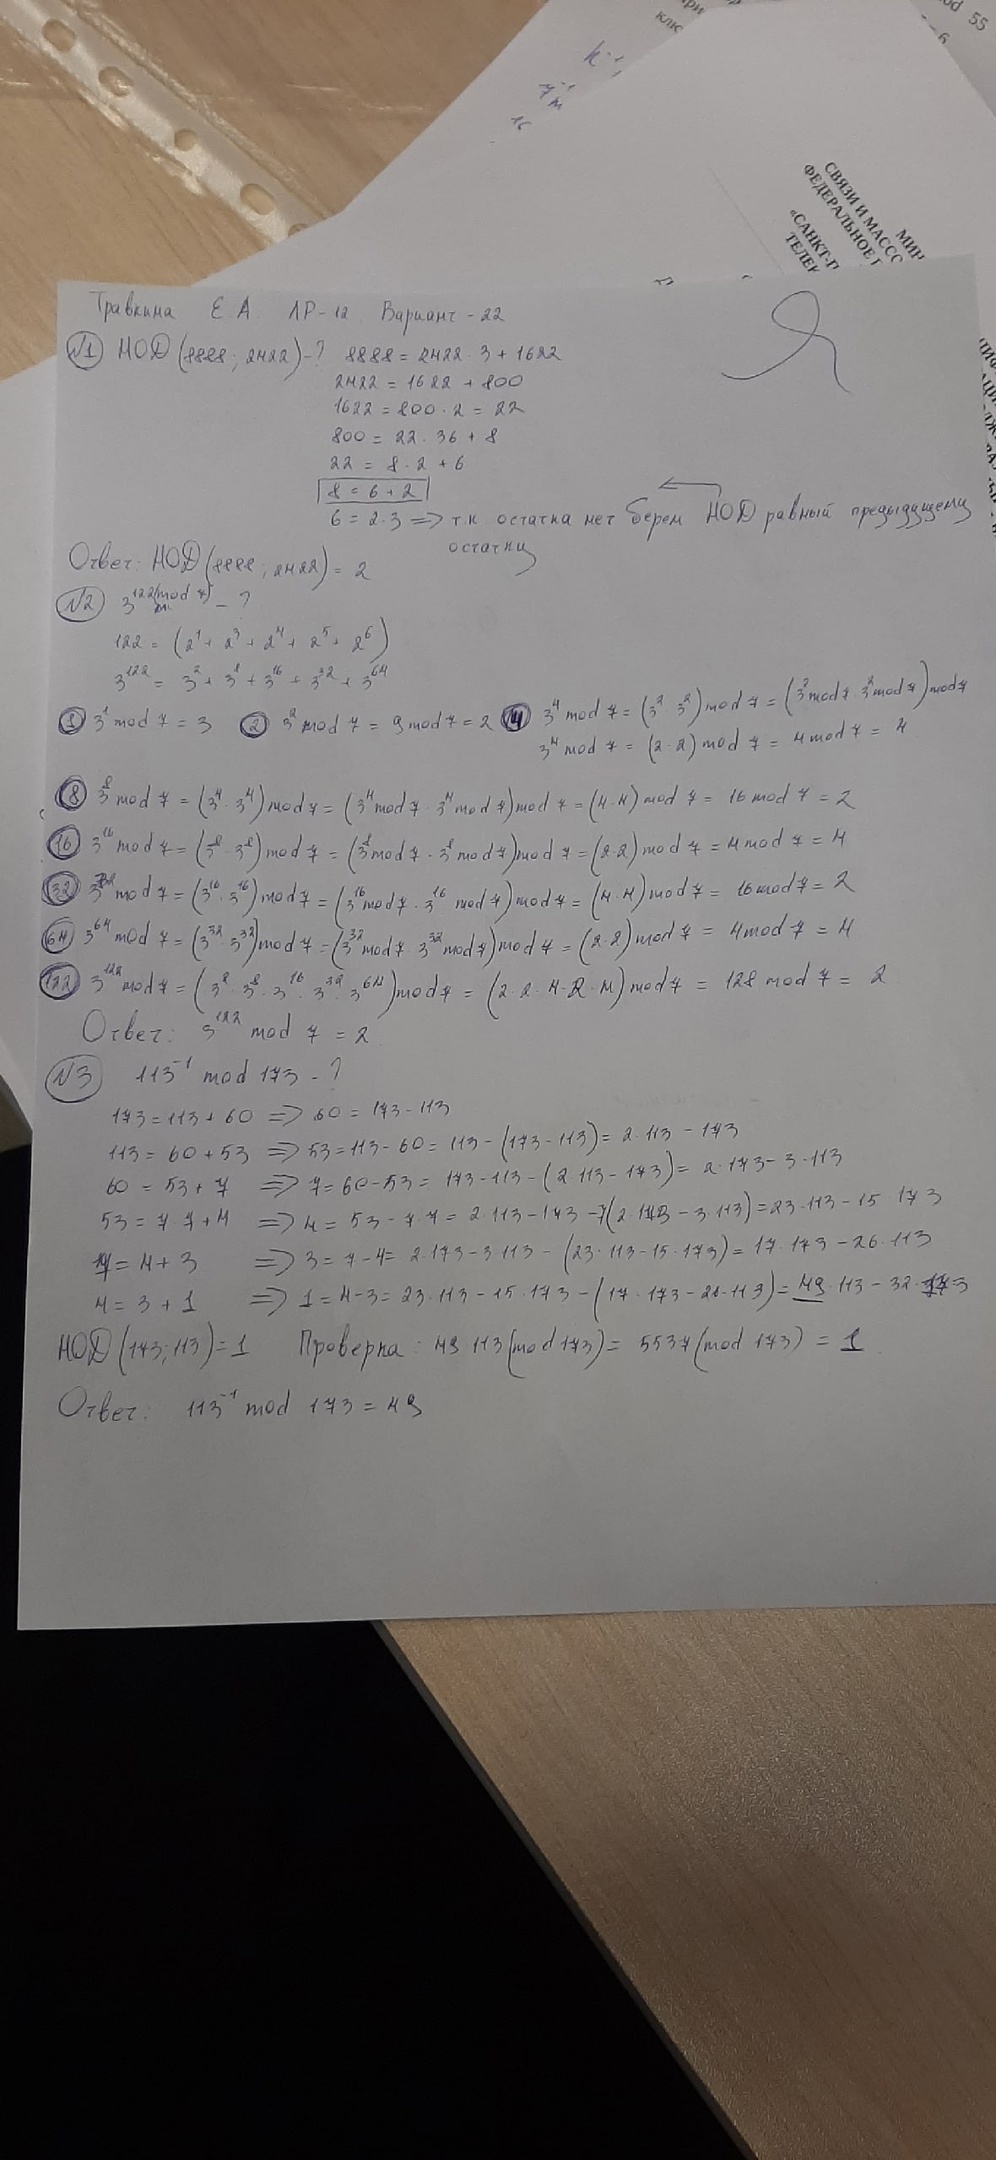 ключ
mod 55
6
k⁻¹
7⁻¹ m
16
МИН
СВЯЗИ И МАСС
ФЕДЕРАЛЬНОЕ Г
«САНКТ-П
ТЕЛЕК
Травкина Е А. ЛР-12. Вариант - 22
№1 НОД (8888; 2422) - ? 8888 = 2422 · 3 + 1622
2422 = 1622 + 800
1622 = 800 · 2 = 22
800 = 22 · 36 + 8
22 = 8 · 2 + 6
8 = 6 + 2
6 = 2·3 => т.к остатка нет берем НОД равный предыдущему
остатку
Ответ: НОД (8888; 2422) = 2
№2 3¹²² (mod 7) - ?
122 = (2¹ + 2³ + 2⁴ + 2⁵ + 2⁶)
3¹²² = 3² + 3⁸ + 3¹⁶ + 3³² + 3⁶⁴
1 3¹ mod 7 = 3 2 3² mod 7 = 9 mod 7 = 2 4 3⁴ mod 7 = (3² · 3²) mod 7 = (3² mod 7 · 3² mod 7) mod 7
3⁴ mod 7 = (2 · 2) mod 7 = 4 mod 7 = 4
8 3⁸ mod 7 = (3⁴ · 3⁴) mod 7 = (3⁴ mod 7 · 3⁴ mod 7) mod 7 = (4·4) mod 7 = 16 mod 7 = 2
16 3¹⁶ mod 7 = (3⁸ · 3⁸) mod 7 = (3⁸ mod 7 · 3⁸ mod 7) mod 7 = (2·2) mod 7 = 4 mod 7 = 4
32 3³² mod 7 = (3¹⁶ · 3¹⁶) mod 7 = (3¹⁶ mod 7 · 3¹⁶ mod 7) mod 7 = (4·4) mod 7 = 16 mod 7 = 2
64 3⁶⁴ mod 7 = (3³² · 3³²) mod 7 = (3³² mod 7 · 3³² mod 7) mod 7 = (2·2) mod 7 = 4 mod 7 = 4
122 3¹²² mod 7 = (3² · 3⁸ · 3¹⁶ · 3³² · 3⁶⁴) mod 7 = (2 · 2 · 4 · 2 · 4) mod 7 = 128 mod 7 = 2
Ответ: 3¹²² mod 7 = 2
№3 113⁻¹ mod 173 - ?
173 = 113 + 60 => 60 = 173 - 113
113 = 60 + 53 => 53 = 113 - 60 = 113 - (173 - 113) = 2·113 - 173
60 = 53 + 7 => 7 = 60 - 53 = 173 - 113 - (2·113 - 173) = 2·173 - 3·113
53 = 7·7 + 4 => 4 = 53 - 7·7 = 2·113 - 173 - 7(2·173 - 3·113) = 23·113 - 15·173
7 = 4 + 3 => 3 = 7 - 4 = 2·173 - 3·113 - (23·113 - 15·173) = 17·173 - 26·113
4 = 3 + 1 => 1 = 4 - 3 = 23·113 - 15·173 - (17·173 - 26·113) = 49·113 - 32·173
НОД (173; 113) = 1 Проверка: 49·113 (mod 173) = 5537 (mod 173) = 1
Ответ: 113⁻¹ mod 173 = 49